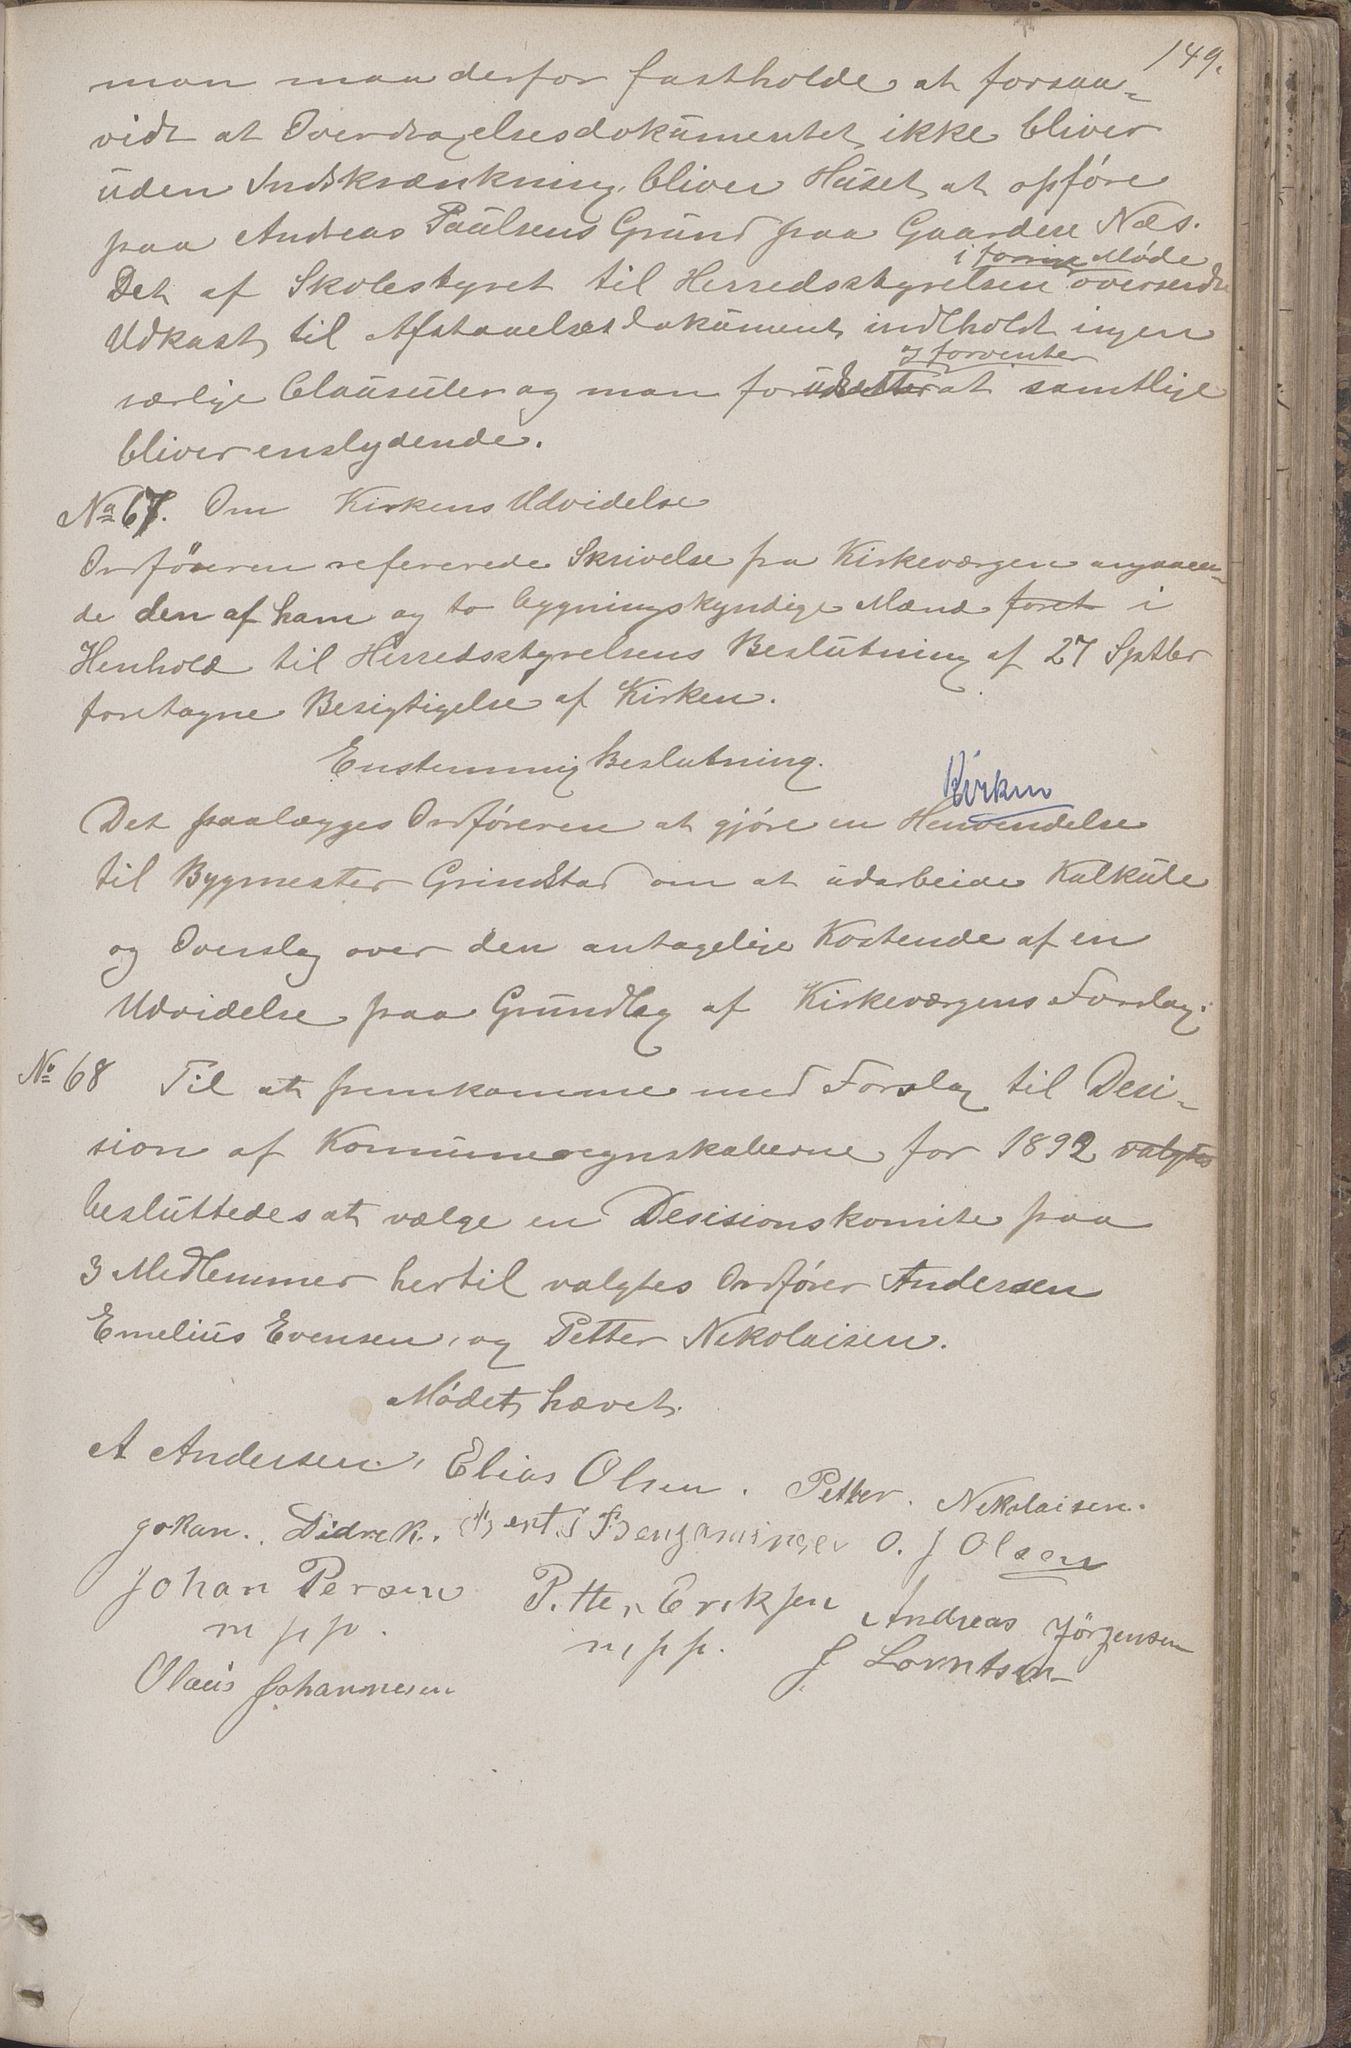 149.
man maa derfor fastholde at forsaa-
vidt at Overdragelsesdokumentet ikke bliver
uden Indskrænkning, bliver Huset at opføre
paa Andreas Paulsens Grund paa Gaarden Næs.
i forrige Møde
Det af Skolestyret til Herredsstyrelsen oversendte
Udkast til Afstaaelsesdokument indholdt ingen
og forventer
særlige Clausuler og man forudsætter at samtlige
bliver enslydende.
No 67. Om Kirkens Udvidelse
Ordføreren refererede Skrivelse fra Kirkeværgen angaaen-
de den af ham og to bygningskyndige Mænd foret i
Henhold til Herredsstyrelsens Beslutning af 27 Sptbr
foretagne Besigtigelse af Kirken.
Enstemmig Beslutning.
Kirken
Det paalægges Ordføreren at gjøre en Henvendelse
til Bygmester Grindstad om at udarbeide Kalkule
og Overslag over den antagelige Kostende af en
Udvidelse paa Grundlag af Kirkeværgens Forslag.
No 68 Til at fremkomme med Forslag til Desi-
sion af Kommuneregnskaberne for 1892 valgtes
besluttedes at vælge en Desisionskomite paa
3 Medlemmer hertil valgtes Ordfører Andersen
Emelius Evensen, og Petter Nikolaisen.
Mødet hævet.
A Andersen, Elias Olsen. Petter. Nikolaisen.
Johan. Didrek. Bent. J Benjaminsen O. J Olsen
Johan Persen Petter Eriksen Andreas Jørgensen
m p p. m p p. J Lorntsen
Olaus Johannesen